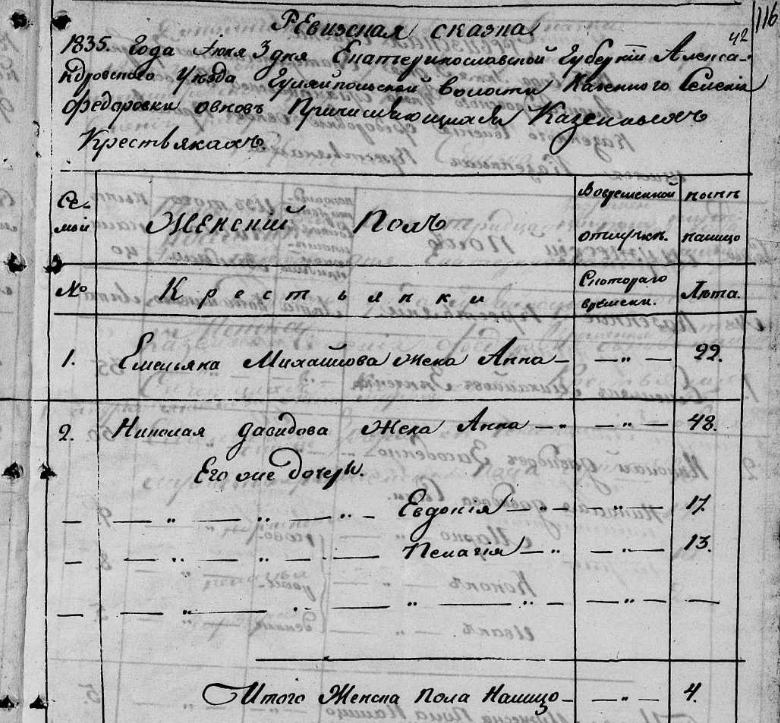 116
42
Ревизская сказка
1835. Года Июня 3 дня Екатеринославской Губернiи Алекса-
ндровского Уезда Гуляйпольской волости Казенного Селенiя
Федоровки овновъ Причисляющихся Казенныхъ
Крестьянахъ
Се-
мьи
Женскiй Полъ
Вовременной
отлучке.
ныне
налицо
№
Крестьянки
Скотораго
времени.
Лета.
1. Емельяна Михайлова жена Анна — — „ — 22.
2. Николая давидова жена Анна — „ — „ — 48.
Его же дочери.
— — „ „ „ — Евдокiя — „ — — „ — 17.
— — „ „ „ — Пелагiя — „ — „ — 13.
— — „ — „ — „ — „ — — „ — —
Итого Женска пола Налицо — — „ — 4.